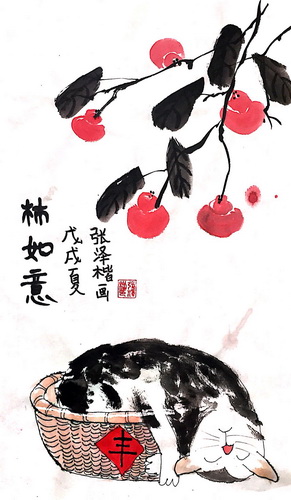 柿如意
戊戌夏
张泽楷画
丰